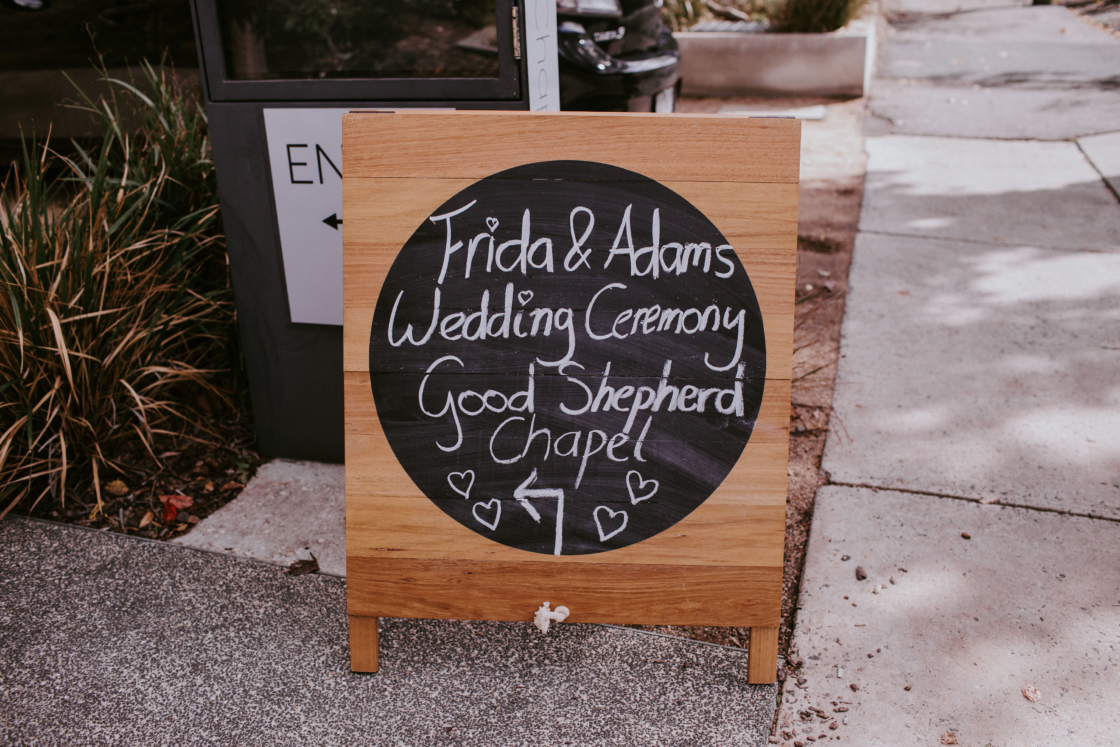 Frida & Adams
Wedding Ceremony
Good Shepherd
Chapel
EN